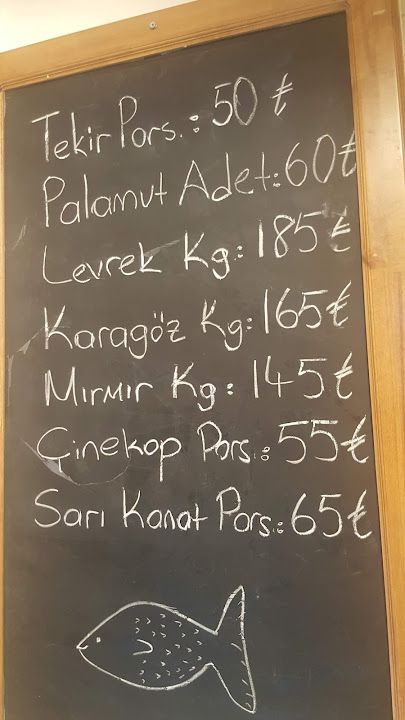 Tekir Pors.: 50 ₺
Palamut Adet: 60₺
Levrek Kg: 185₺
Karagöz Kg: 165₺
Mırmır Kg: 145₺
Çinekop Pors.: 55₺
Sarı Kanat Pors.: 65₺